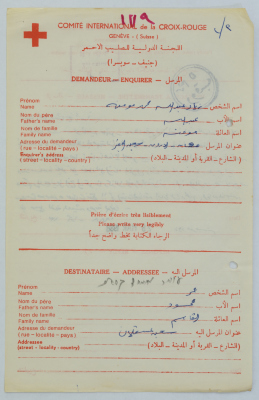 119
COMITÉ INTERNATIONAL de la CROIX-ROUGE
GENÈVE - ( Suisse )
اللجنة الدولية للصليب الاحمر
(جنيف - سويسرا)
DEMANDEUR — ENQUIRER — المرسل
Prénom
Name
اسم الشخص
Nom du père
Father's name
اسم الأب
Nom de famille
Family name
اسم العائلة
Adresse du demandeur
(rue - localité - pays)
عنوان المرسل
Enquirer's address
(street - locality - country)
(الشارع - القرية أو المدينة - البلاد)
Prière d'écrire très lisiblement
Please write very legibly
الرجاء الكتابة بخط واضح جداً
DESTINATAIRE — ADDRESSEE — المرسل اليه
Prénom
Name
اسم الشخص عمر
Nom du père
Father's name
اسم الأب محمود
Nom de famille
Family name
اسم العائلة
Adresse du demandeur
(rue - localité - pays)
عنوان المرسل اليه
Addressee
(street - locality - country)
(الشارع - القرية أو المدينة - البلاد)